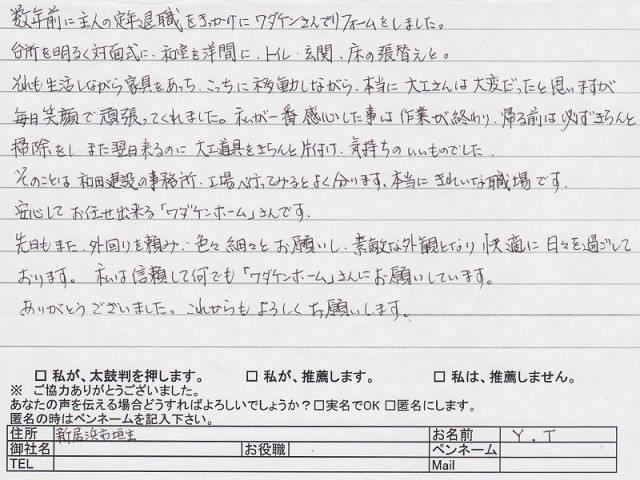 数年前に主人の定年退職をきっかけにワダケンさんでリフォームをしました。
台所を明るく対面式に、和室を洋間に、トイレ・玄関、床の張替えと。
それも生活しながら家具をあっち、こっちに移動しながら、本当に大工さんは大変だったと思いますが
毎日笑顔で頑張ってくれました。私が一番感心した事は作業が終わり、帰る前は必ずきちんと
掃除をし、また翌日来るのに大工道具をきちんと片付け、気持ちのいいものでした。
そのことは和田建設の事務所、工場へ行ってみるとよく分ります。本当にきれいな職場です。
安心してお任せ出来る「ワダケンホーム」さんです。
先日もまた、外回りを頼み、色々細々とお願いし、素敵な外観となり快適に日々を過ごして
おります。私は信頼して何でも「ワダケンホーム」さんにお願いしています。
ありがとうございました。これからもよろしくお願いします。
□ 私が、太鼓判を押します。 □ 私が、推薦します。 □ 私は、推薦しません。
※ ご協力ありがとうございました。
あなたの声を伝える場合どうすればよろしいでしょうか？□実名でOK □匿名にします。
匿名の時はペンネームを記入下さい。
住所 新居浜市垣生 お名前 Y.T
御社名 お役職 ペンネーム
TEL Mail